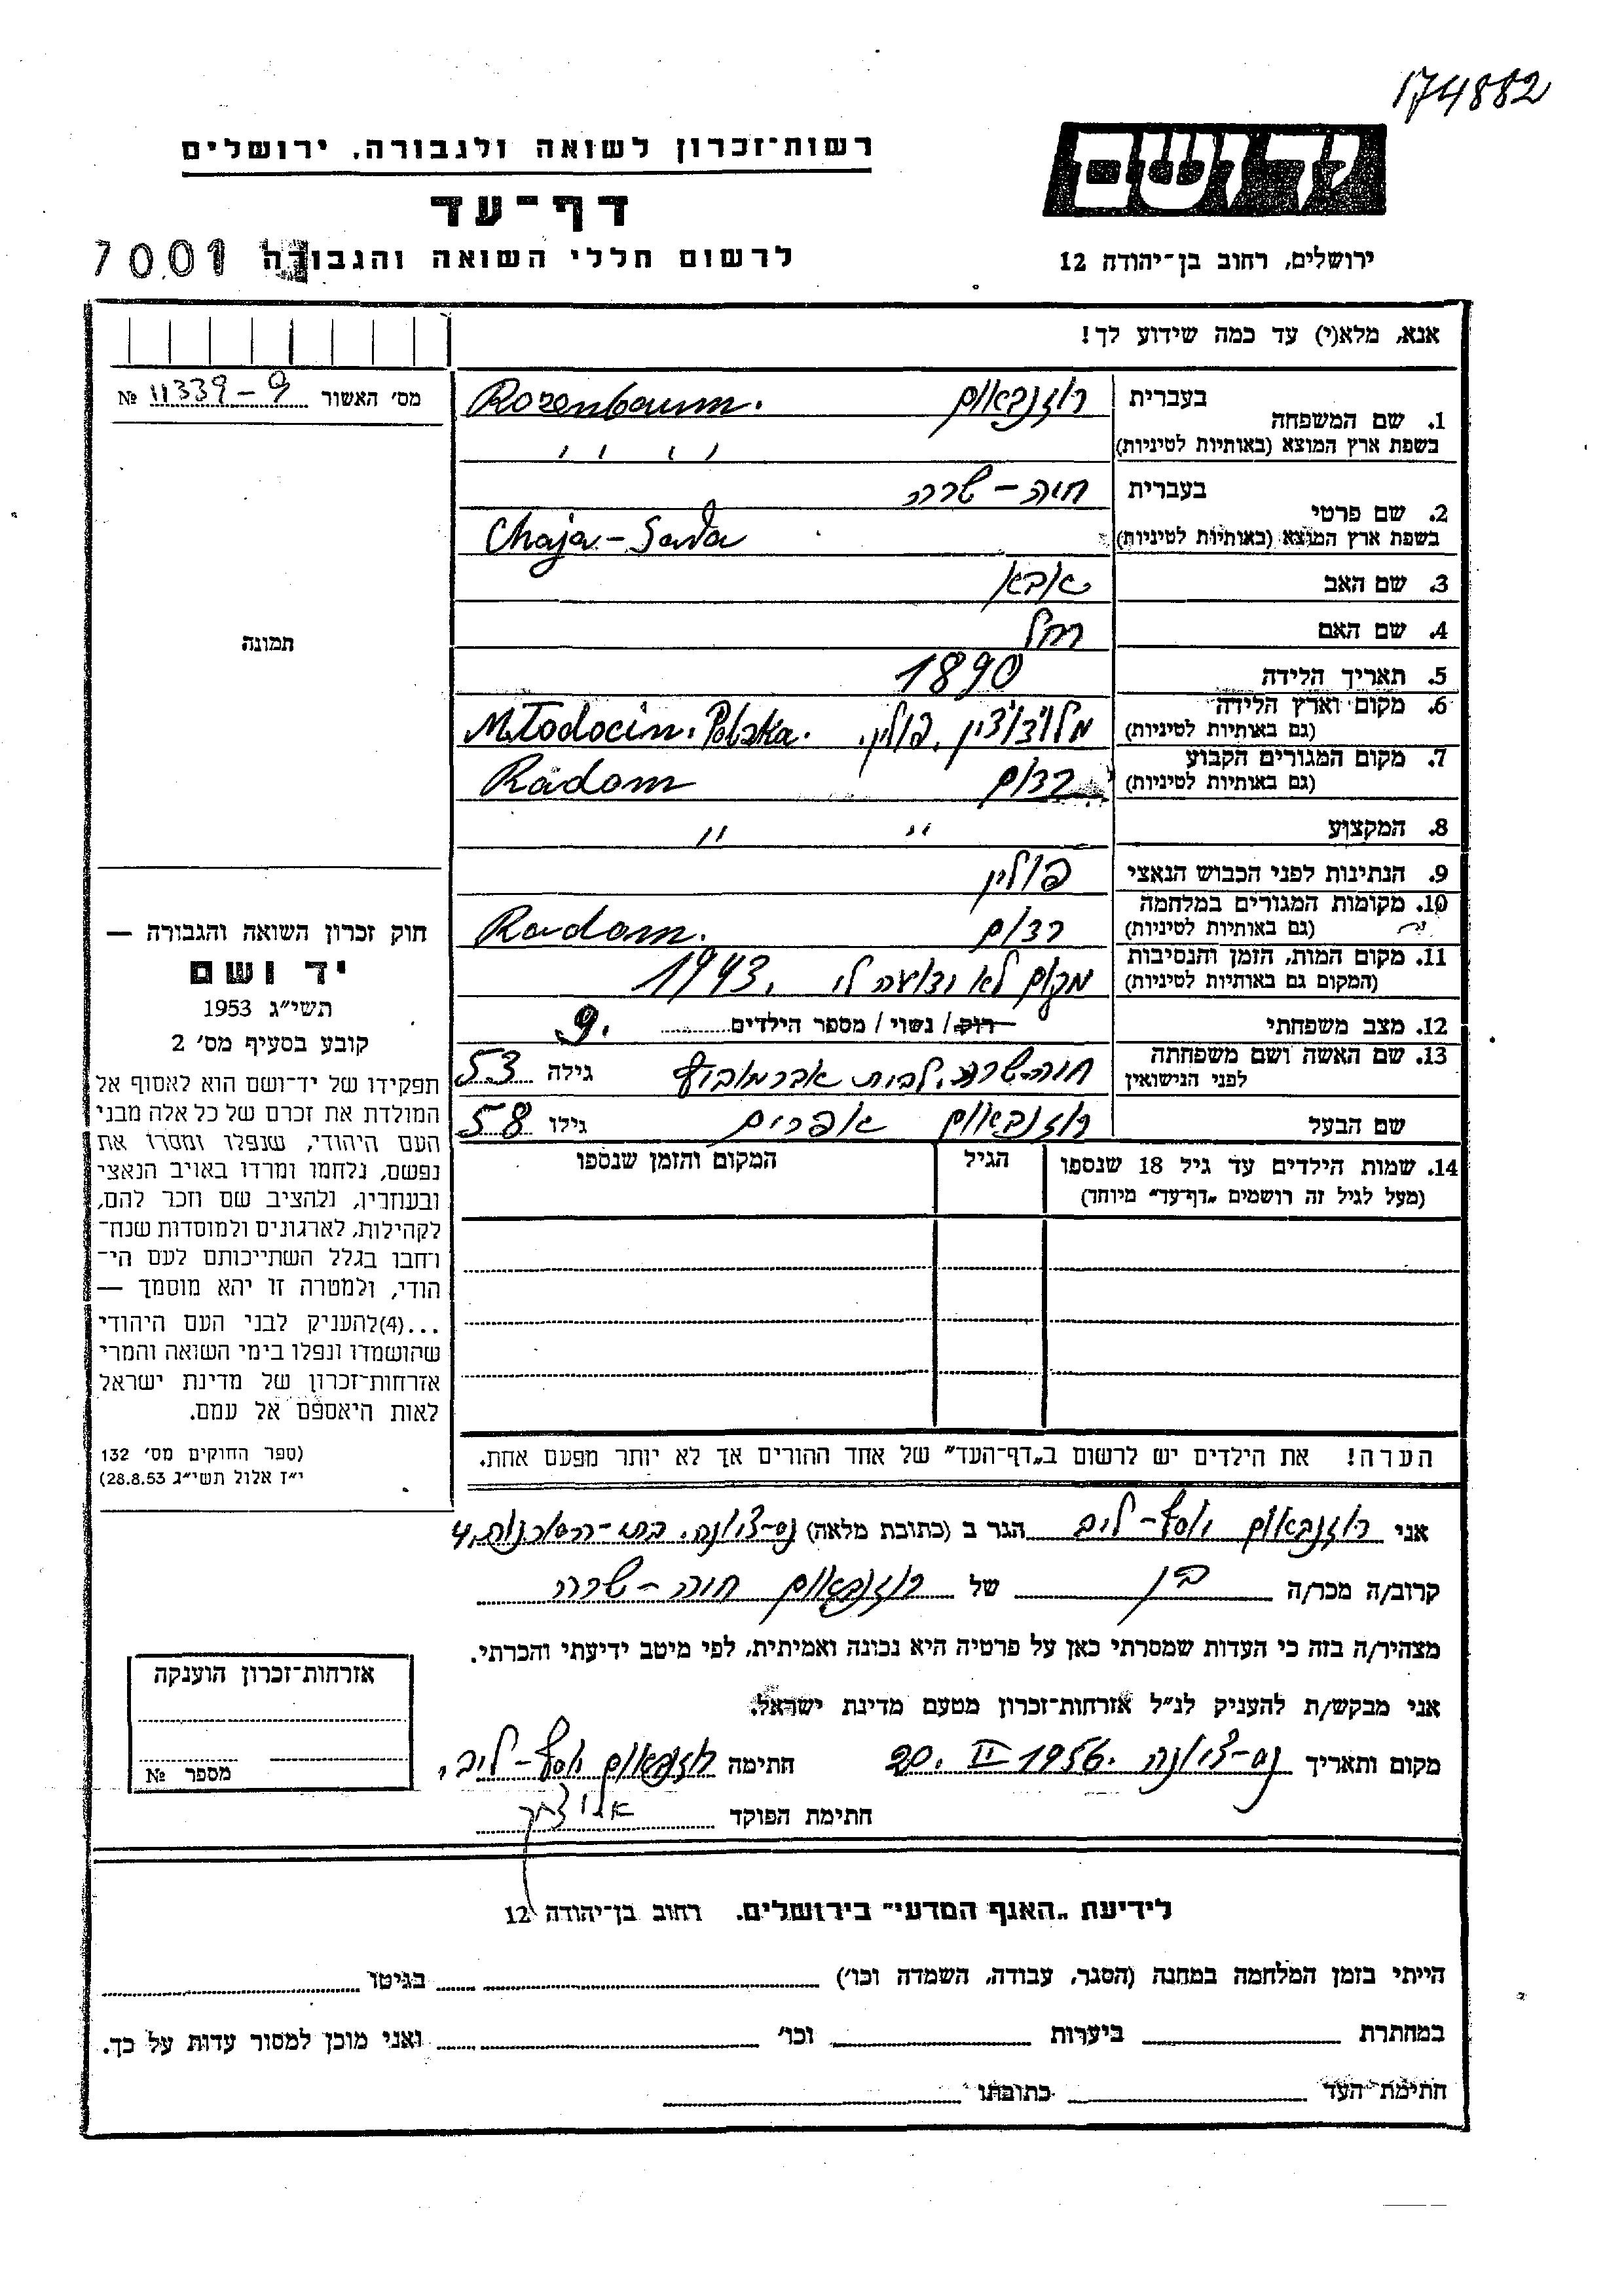 174882
רשות־זכרון לשואה ולגבורה, ירושלים
יד ושם
דף־עד
לרשום חללי השואה והגבורה
7001
ירושלים, רחוב בן־יהודה 12
אנא, מלא(י) עד כמה שידוע לך!
מס׳ האשור 11339-9 №
1. שם המשפחה
בעברית רוזנבאום Rozenbaum.
בשפת ארץ המוצא (באותיות לטיניות) ׳ ׳ ׳ ׳
2. שם פרטי
בעברית חיה-שרה
בשפת ארץ המוצא (באותיות לטיניות) Chaja-Sara
3. שם האב אבא
4. שם האם רחל
תמונה
5. תאריך הלידה 1890
6. מקום וארץ הלידה
(גם באותיות לטיניות) פולין. Młodocin. Polska.
7. מקום המגורים הקבוע
(גם באותיות לטיניות) רדום Radom
8. המקצוע ״ ״
9. הנתינות לפני הכבוש הנאצי פולין
10. מקומות המגורים במלחמה
(גם באותיות לטיניות) רדום Radom.
11. מקום המות, הזמן והנסיבות
(המקום גם באותיות לטיניות) מקום לא ידוע לי. 1943
12. מצב משפחתי רוק / נשוי / מספר הילדים 9.
13. שם האשה ושם משפחתה
לפני הנישואין חיה-שרה. לבית אברמוביץ גילה 53
שם הבעל רוזנבאום אפרים גילו 58
14. שמות הילדים עד גיל 18 שנספו
(מעל לגיל זה רושמים „דף־עד״ מיוחד)
הגיל
המקום והזמן שנספו
חוק זכרון השואה והגבורה —
יד ושם
תשי״ג 1953
קובע בסעיף מס׳ 2
תפקידו של יד־ושם הוא לאסוף אל
המולדת את זכרם של כל אלה מבני
העם היהודי, שנפלו ומסרו את
נפשם, נלחמו ומרדו באויב הנאצי
ובעוזריו, ולהציב שם וזכר להם,
לקהילות, לארגונים ולמוסדות שנח־
רחבו בגלל השתייכותם לעם הי־
הודי, ולמטרה זו יהא מוסמך —
...(4)להעניק לבני העם היהודי
שהושמדו ונפלו בימי השואה והמרי
אזרחות־זכרון של מדינת ישראל
לאות היאספם אל עמם.
(ספר החוקים מס׳ 132
י״ז אלול תשי״ג 28.8.53)
הערה! את הילדים יש לרשום ב„דף־העד״ של אחד ההורים אך לא יותר מפעם אחת.
אני רוזנבאום יוסף-ליב הגר ב (כתובת מלאה) נס-ציונה. 4
קרוב/ה מכר/ה בן של רוזנבאום חיה-שרה
מצהיר/ה בזה כי העדות שמסרתי כאן על פרטיה היא נכונה ואמיתית, לפי מיטב ידיעתי והכרתי.
אני מבקש/ת להעניק לנ״ל אזרחות־זכרון מטעם מדינת ישראל.
מקום ותאריך נס-ציונה 20. II 1956. חתימה רוזנבאום יוסף-ליב.
חתימת הפוקד
אזרחות־זכרון הוענקה
מספר №
לידיעת „האגף המדעי״ בירושלים. רחוב בן־יהודה 12
הייתי בזמן המלחמה במחנה (הסגר, עבודה, השמדה וכו׳) בגיטו
במחתרת ביערות וכו׳ ואני מוכן למסור עדות על כך.
חתימת העד כתובתו